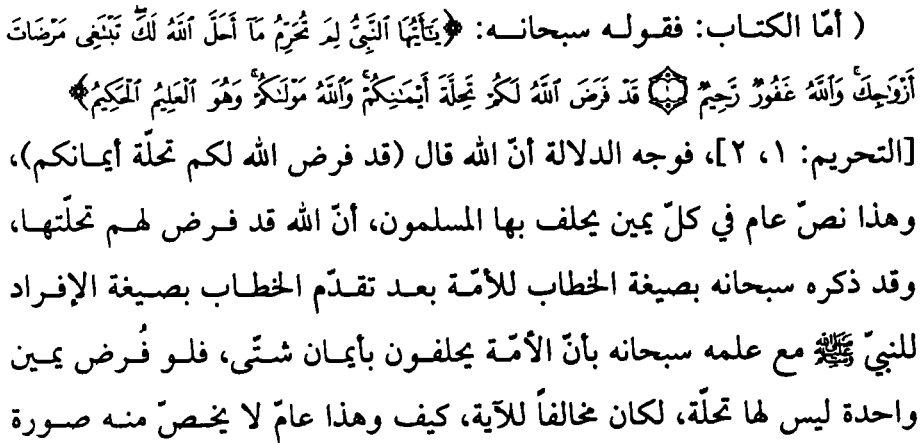 ( أمّا الكتـاب: فقـولـه سبحانـــه: ﴿يَٰٓأَيُّهَا ٱلنَّبِىُّ لِمَ تُحَرِّمُ مَآ أَحَلَّ ٱللَّهُ لَكَ ۖ تَبْتَغِى مَرْضَاتَ
أَزْوَٰجِكَ ۚ وَٱللَّهُ غَفُورٌ رَّحِيمٌ ۝١ قَدْ فَرَضَ ٱللَّهُ لَكُمْ تَحِلَّةَ أَيْمَٰنِكُمْ ۚ وَٱللَّهُ مَوْلَىٰكُمْ ۖ وَهُوَ ٱلْعَلِيمُ ٱلْحَكِيمُ﴾
[التحريم: ١، ٢]، فوجه الدلالة أنّ الله قال (قد فرض الله لكم تحلّة أيمـانكم)،
وهذا نصّ عام في كلّ يمين يحلف بها المسلمون، أنّ الله قد فـرض لهـم تحلّتهـا،
وقد ذكره سبحانه بصيغة الخطاب للأمّـة بعـد تقـدّم الخطـاب بصـيغة الإفـراد
للنبيّ ﷺ مع علمه سبحانه بأنّ الأمّـة يحلفـون بأيمـان شتّـى، فلـو فُـرض يمـين
واحدة ليس لها تحلّة، لكان مخالفاً للآية، كيف وهذا عامّ لا يخـصّ منـه صـورة